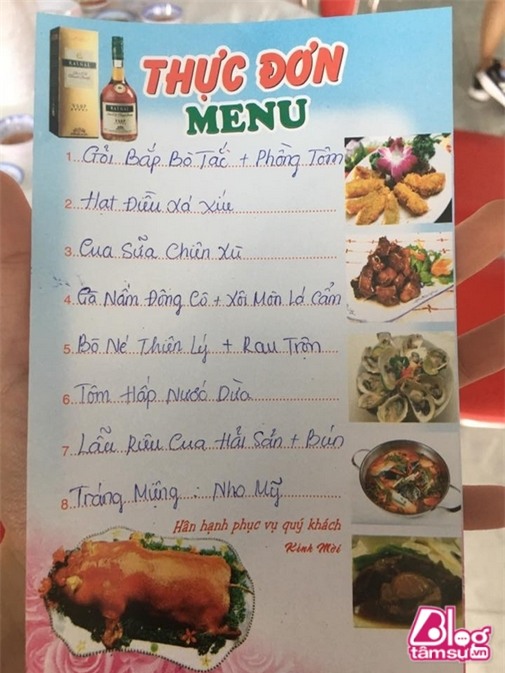 THỰC ĐƠN
MENU
1. Gỏi Bắp Bò Tắc + Phồng Tôm
2. Hạt Điều Xá Xíu
3. Cua Sữa Chiên Xù
4. Gà Nấm Đông Cô + Xôi Mặn Lá Cẩm
5. Bò Né Thiên Lý + Rau Trộn
6. Tôm Hấp Nước Dừa
7. Lẩu Riêu Cua Hải Sản + Bún
8. Tráng Miệng : Nho Mỹ
Hân hạnh phục vụ quý khách
Kính Mời
Blog
tâmsự.vn